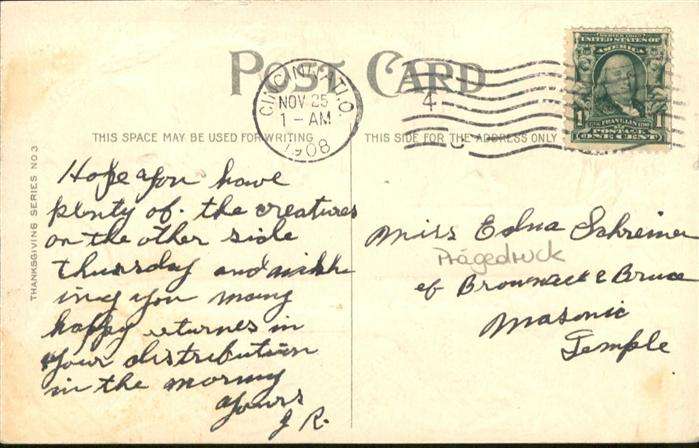 SERIES 1902
UNITED STATES OF AMERICA
POST CARD
CINCINNATI, O.
NOV 25
1-AM
1908
4
1 FRANKLIN 1
POSTAGE
ONE CENT
THIS SPACE MAY BE USED FOR WRITING
THIS SIDE FOR THE ADDRESS ONLY
THANKSGIVING SERIES NO 3
Hope you have
plenty of the creatures
on the other side
Thursday and wishh
ing you many
happy returnes in
your distribution
in the morning
Yours
J R.
Miss Edna Schreiner
Prägedruck
of & Bruce
Masonic
Temple